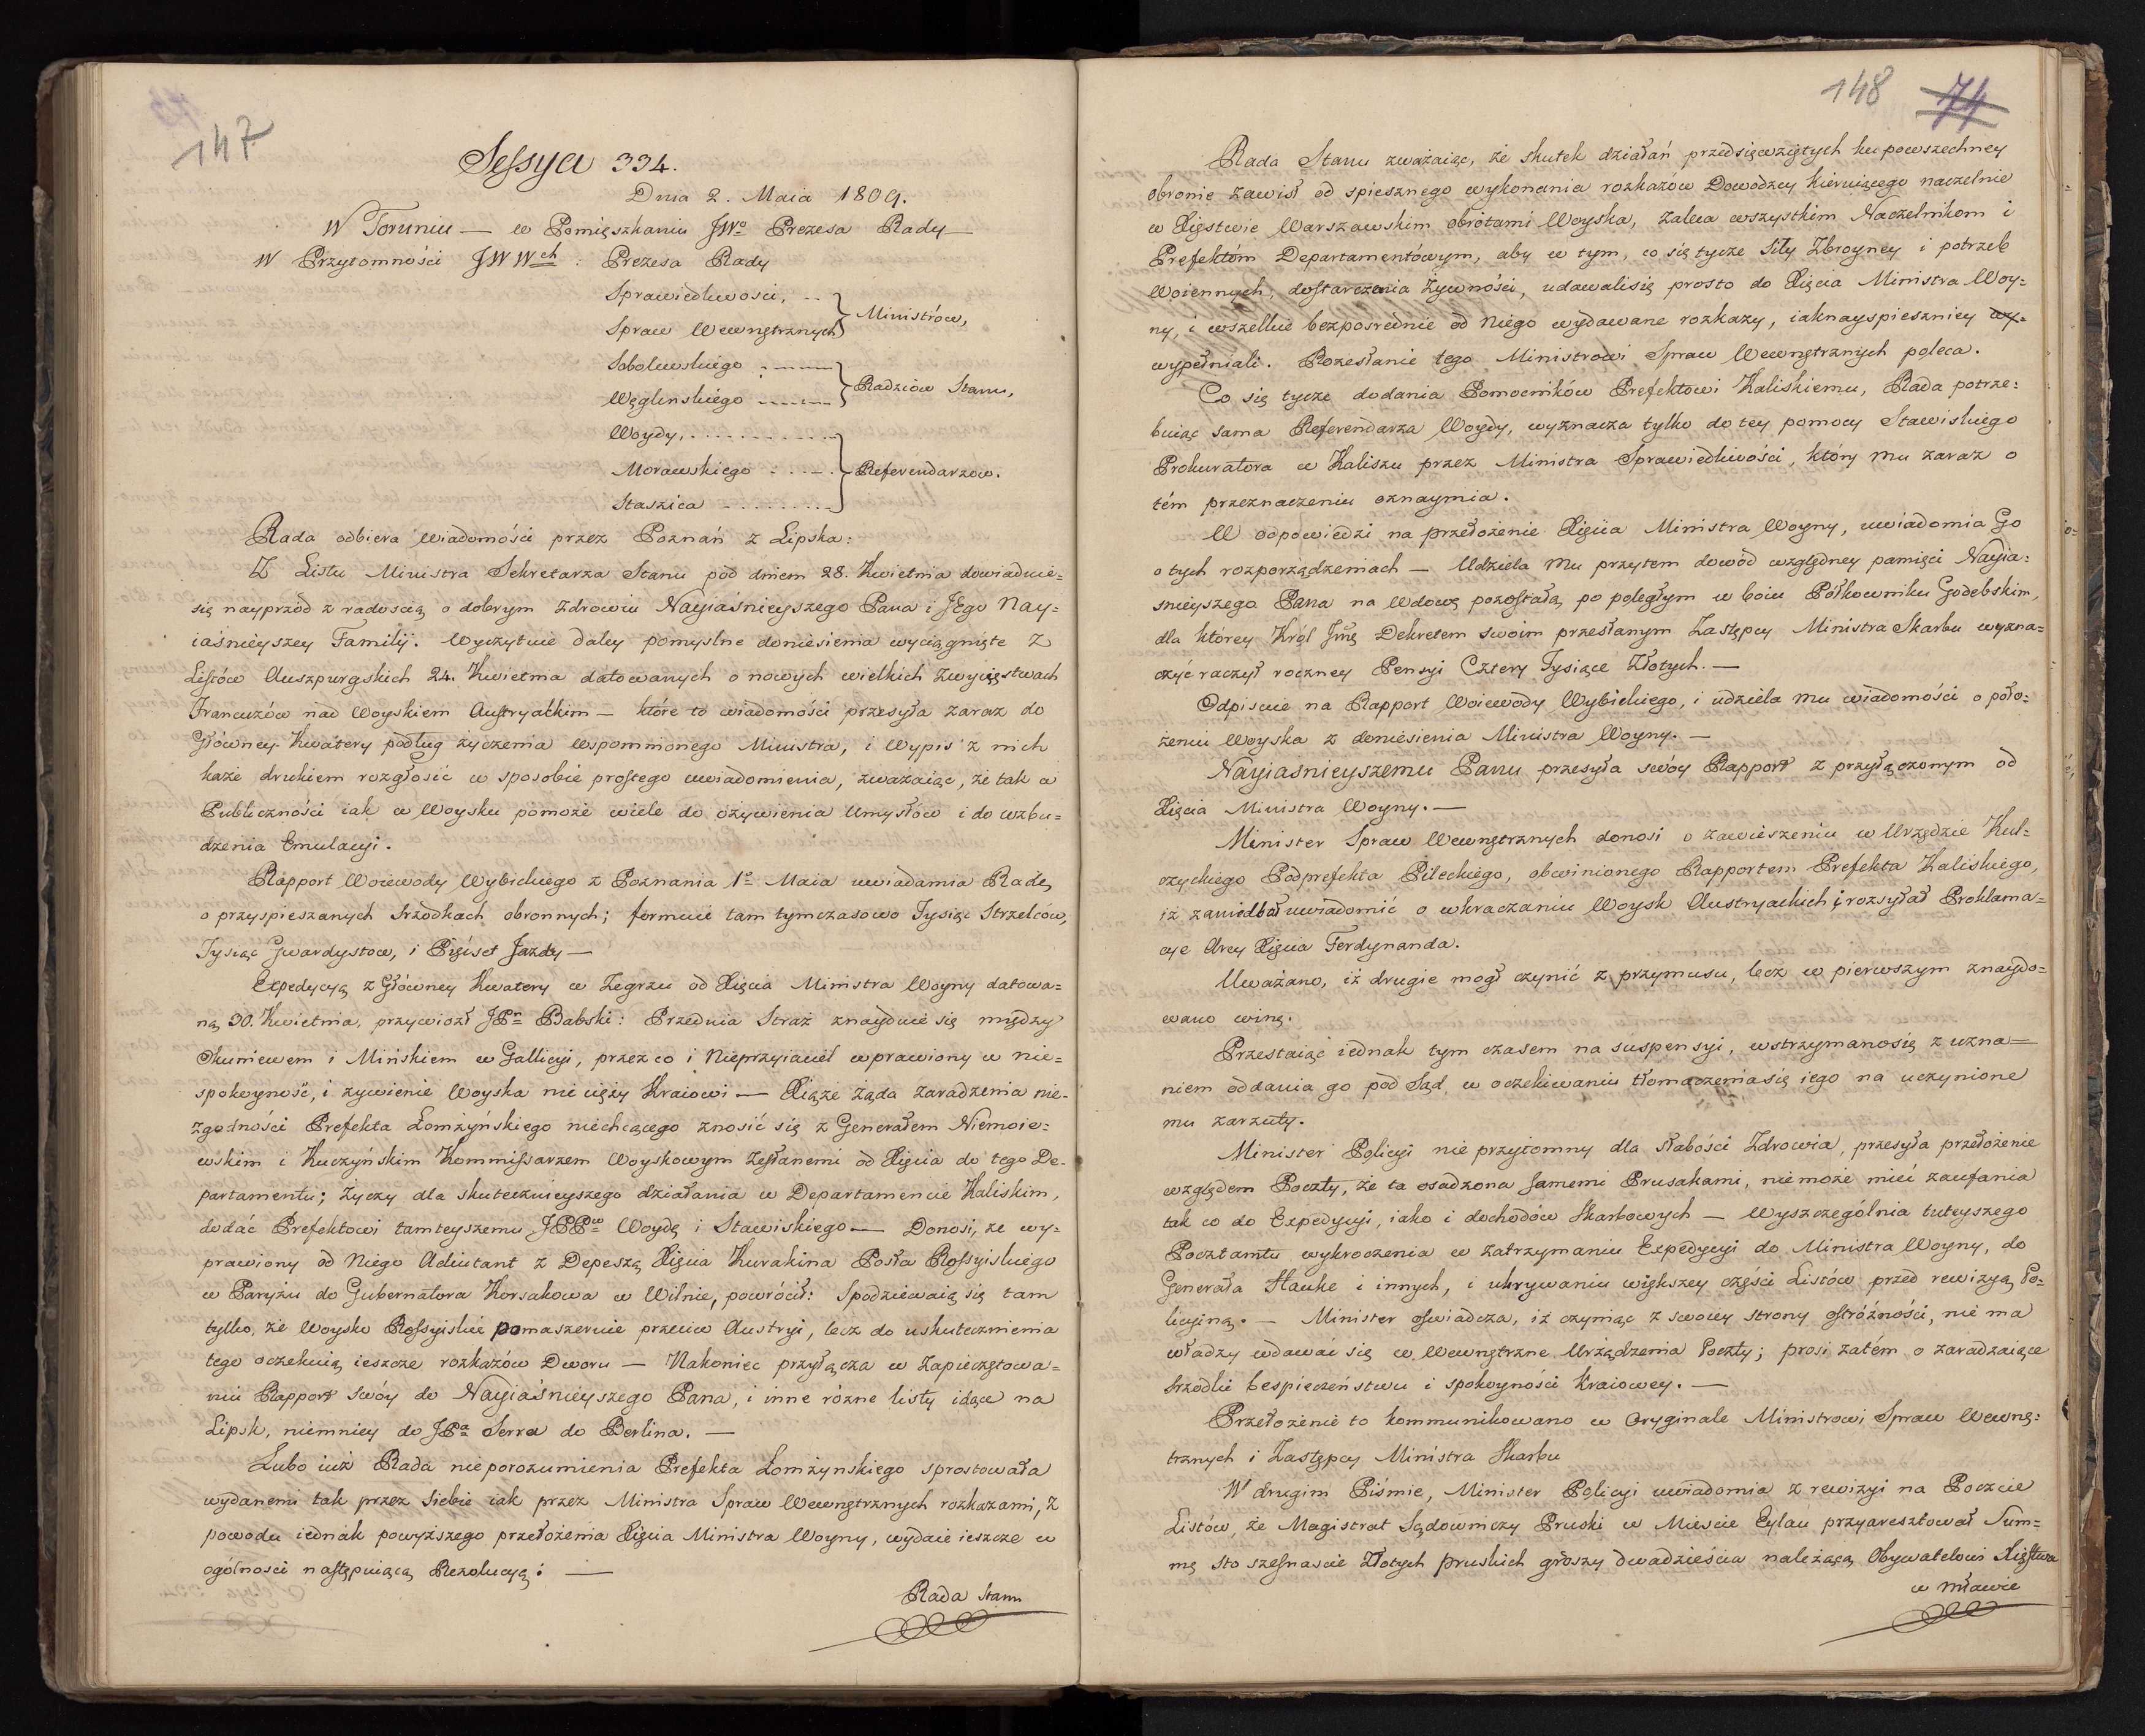 147
Sessya 334.
Dnia 2. Maia 1809.
W Toruniu — w Pomięszkaniu JWo Prezesa Rady —
W Przytomności JWWch : Prezesa Rady
Sprawiedliwości, ..
Spraw Wewnętrznych } Ministrów,
Sobolewskiego
Węglenskiego } Radzców Stanu,
Woydy,
Morawskiego
Staszica } Referendarzow.
Rada odbiera wiadomości przez Poznań z Lipska:
Z Listu Ministra Sekretarza Stanu pod dniem 28. Kwietnia dowiaduie=
się nayprzód z radością o dobrym zdrowiu Nayiaśnieyszego Pana i Jego Nay=
iaśnieyszey Familij. Wyczytuie daley pomyslne doniesienia wyciągnięte z
Listów Auszpurgskich 24. Kwietnia datowanych o nowych wielkich Zwycięstwach
Francuzów nad Woyskiem Austryatkim — które to wiadomości przesyła zaraz do
Główney Kwatery podług życzenia wspomnionego Ministra, i Wypis z nich
każe drukiem rozgłosić w sposobie prostego uwiadomienia, zważaiąc, że tak w
Publiczności iak w Woysku pomoże wiele do ożywienia Umysłów i do wzbu=
dzenia Emulacyi.
Rapport Woiewody Wybickiego z Poznania 1o Maia uwiadamia Radę
o przyspieszanych śrzodkach obronnych; formuie tam tymczasowo Tysiąc Strzelców,
Tysiąc Gwardystow, i Pięćset Jazdy —
Expedycyą z Główney Kwatery w Zegrzu od Xięcia Ministra Woyny datowa=
ną 30. Kwietnia, przywiozł JPn Babski: Przednia Straż znayduie się między
Okuniewem i Mińskiem w Gallicyi, przez co i Nieprzyiaciel wprawiony w nie=
spokoyność, i żywienie Woyska nie cięży Kraiowi — Xiąże żąda zaradzenia nie-
zgodności Prefekta Łomżyńskiego niechcącego znosić się z Generałem Niemoie=
wskim i Kuczyńskim Kommissarzem Woyskowym zesłanemi od Xięcia do tego De-
partamentu; życzy dla skutecznieyszego działania w Departamencie Kaliskim,
dodać Prefektowi tamteyszemu JPPw Woydę i Stawiskiego — Donosi, że wy-
prawiony od Niego Adiutant z Depeszą Xięcia Kurakina Posła Rossyiskiego
w Paryżu do Gubernatora Korsakowa w Wilnie, powrócił: Spodziewaią się tam
tylko, że Woysko Rossyiskie pomaszeruie przeciw Austryi, lecz do uskutecznienia
tego oczekuią ieszcze rozkazów Dworu — Nakoniec przyłącza w zapieczętowa=
niu Rapport swóy do Nayiaśnieyszego Pana, i inne różne listy idące na
Lipsk, niemniey do JPa Serra do Berlina. —
Lubo iuż Rada nieporozumienia Prefekta Łomżynskiego sprostowała
wydanemi tak przez siebie iak przez Ministra Spraw Wewnętrznych rozkazami, z
powodu iednak powyższego przełożenia Xięcia Ministra Woyny, wydaie ieszcze w
ogólności następuiącą Rezolucyą: —
Rada Stanu
148 74
Rada Stanu zważaiąc, że skutek działań przedsięwziętych ku powszechney
obronie zawisł od spiesznego wykonania rozkazów Dowodzcy kieruiącego naczelnie
w Xięstwie Warszawskim obrotami Woyska, zaleca wszystkim Naczelnikom i
Prefektóm Departamentówym, aby w tym, co się tycze Siły Zbroyney i potrzeb
Woiennych, dostarczenia żywności, udawalisię prosto do Xięcia Ministra Woy=
ny, i wszelkie bezposrednie od Niego wydawane rozkazy, iaknayspieszniey wy=
wypełniali. Rozesłanie tego Ministrowi Spraw Wewnętrznych poleca.
Co się tycze dodania Pomocników Prefektowi Kaliskiemu, Rada potrze=
buiąc sama Referendarza Woydy, wyznacza tylko do tey pomocy Stawiskiego
Prokuratora w Kaliszu przez Ministra Sprawiedliwości, który mu zaraz o
tém przeznaczeniu oznaymia.
W odpowiedzi na przełożenie Xięcia Ministra Woyny, uwiadomia Go
o tych rozporządzeniach — Udziela mu przytem dowód względney pamięci Nayia=
snieyszego Pana na Wdowę pozostałą po poległym w boiu Półkowniku Godebskim,
dla którey Król Jmć Dekretem swoim przesłanym Zastępcy Ministra Skarbu wyzna=
czyć raczył roczney Pensyi Cztery Tysiące Złotych. —
Odpisuie na Rapport Woiewody Wybickiego, i udziela mu wiadomości o poło=
żeniu Woyska z doniesienia Ministra Woyny. —
Nayiasnieyszemu Panu przesyła swóy Rapport z przyłączonym od
Xięcia Ministra Woyny. —
Minister Spraw Wewnętrznych donosi o zawieszeniu w Urzędzie Kul=
czyckiego Podprefekta Pileckiego, obwinionego Rapportem Prefekta Kaliskiego,
iż zaniedbał uwiadomić o wkraczaniu Woysk Austryackich i rozsyłał Proklama=
cye Arcy Xięcia Ferdynanda.
Uważano, iż drugie mogł czynić z przymusu, lecz w pierwszym znaydo=
wano winę.
Przestaiąc iednak tym czasem na suspensyi, wstrzymanosię z uzna=
niem oddania go pod Sąd, w oczekiwaniu tłomaczeniasię iego na uczynione
mu zarzuty.
Minister Policyi nie przytomny dla słabości Zdrowia, przesyła przełożenie
względem Poczty, że ta osadzona samemi Prusakami, nie może mieć zaufania
tak co do Expedycyi, iako i dochodów Skarbowych — Wyszczególnia tuteyszego
Pocztamtu wykroczenia w zatrzymaniu Expedycyi do Ministra Woyny, do
Generała Hauke i innych, i ukrywaniu większey części Listów przed rewizyą Po=
licyiną. — Minister oswiadcza, iż czyniąc z swoiey strony ostróżności, nie ma
władzy wdawać się w Wewnętrzne Urządzenia Poczty; prosi zatém o zaradzaiące
śrzodki bespieczeństwu i spokoyności Kraiowey. —
Przełożenie to kommunikowano w Oryginale Ministrowi Spraw Wewnę=
trznych i Zastępcy Ministra Skarbu
W drugim Piśmie, Minister Policyi uwiadomia z rewizyi na Poczcie
Listów, że Magistrat Sądowniczy Pruski w Mieście Eylau przyaresztował Sum=
mę sto szesnascie Złotych pruskich groszy dwadzieścia należącą Obywatelowi Xięstwa
w Mławie